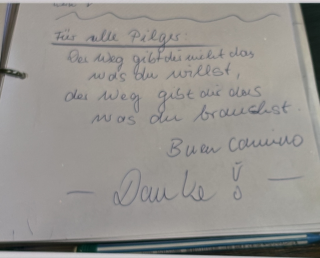 Für alle Pilger:
Der Weg gibt dir nicht das
was du willst,
der Weg gibt dir das
was du brauchst.
Buen Camino
— Danke! —